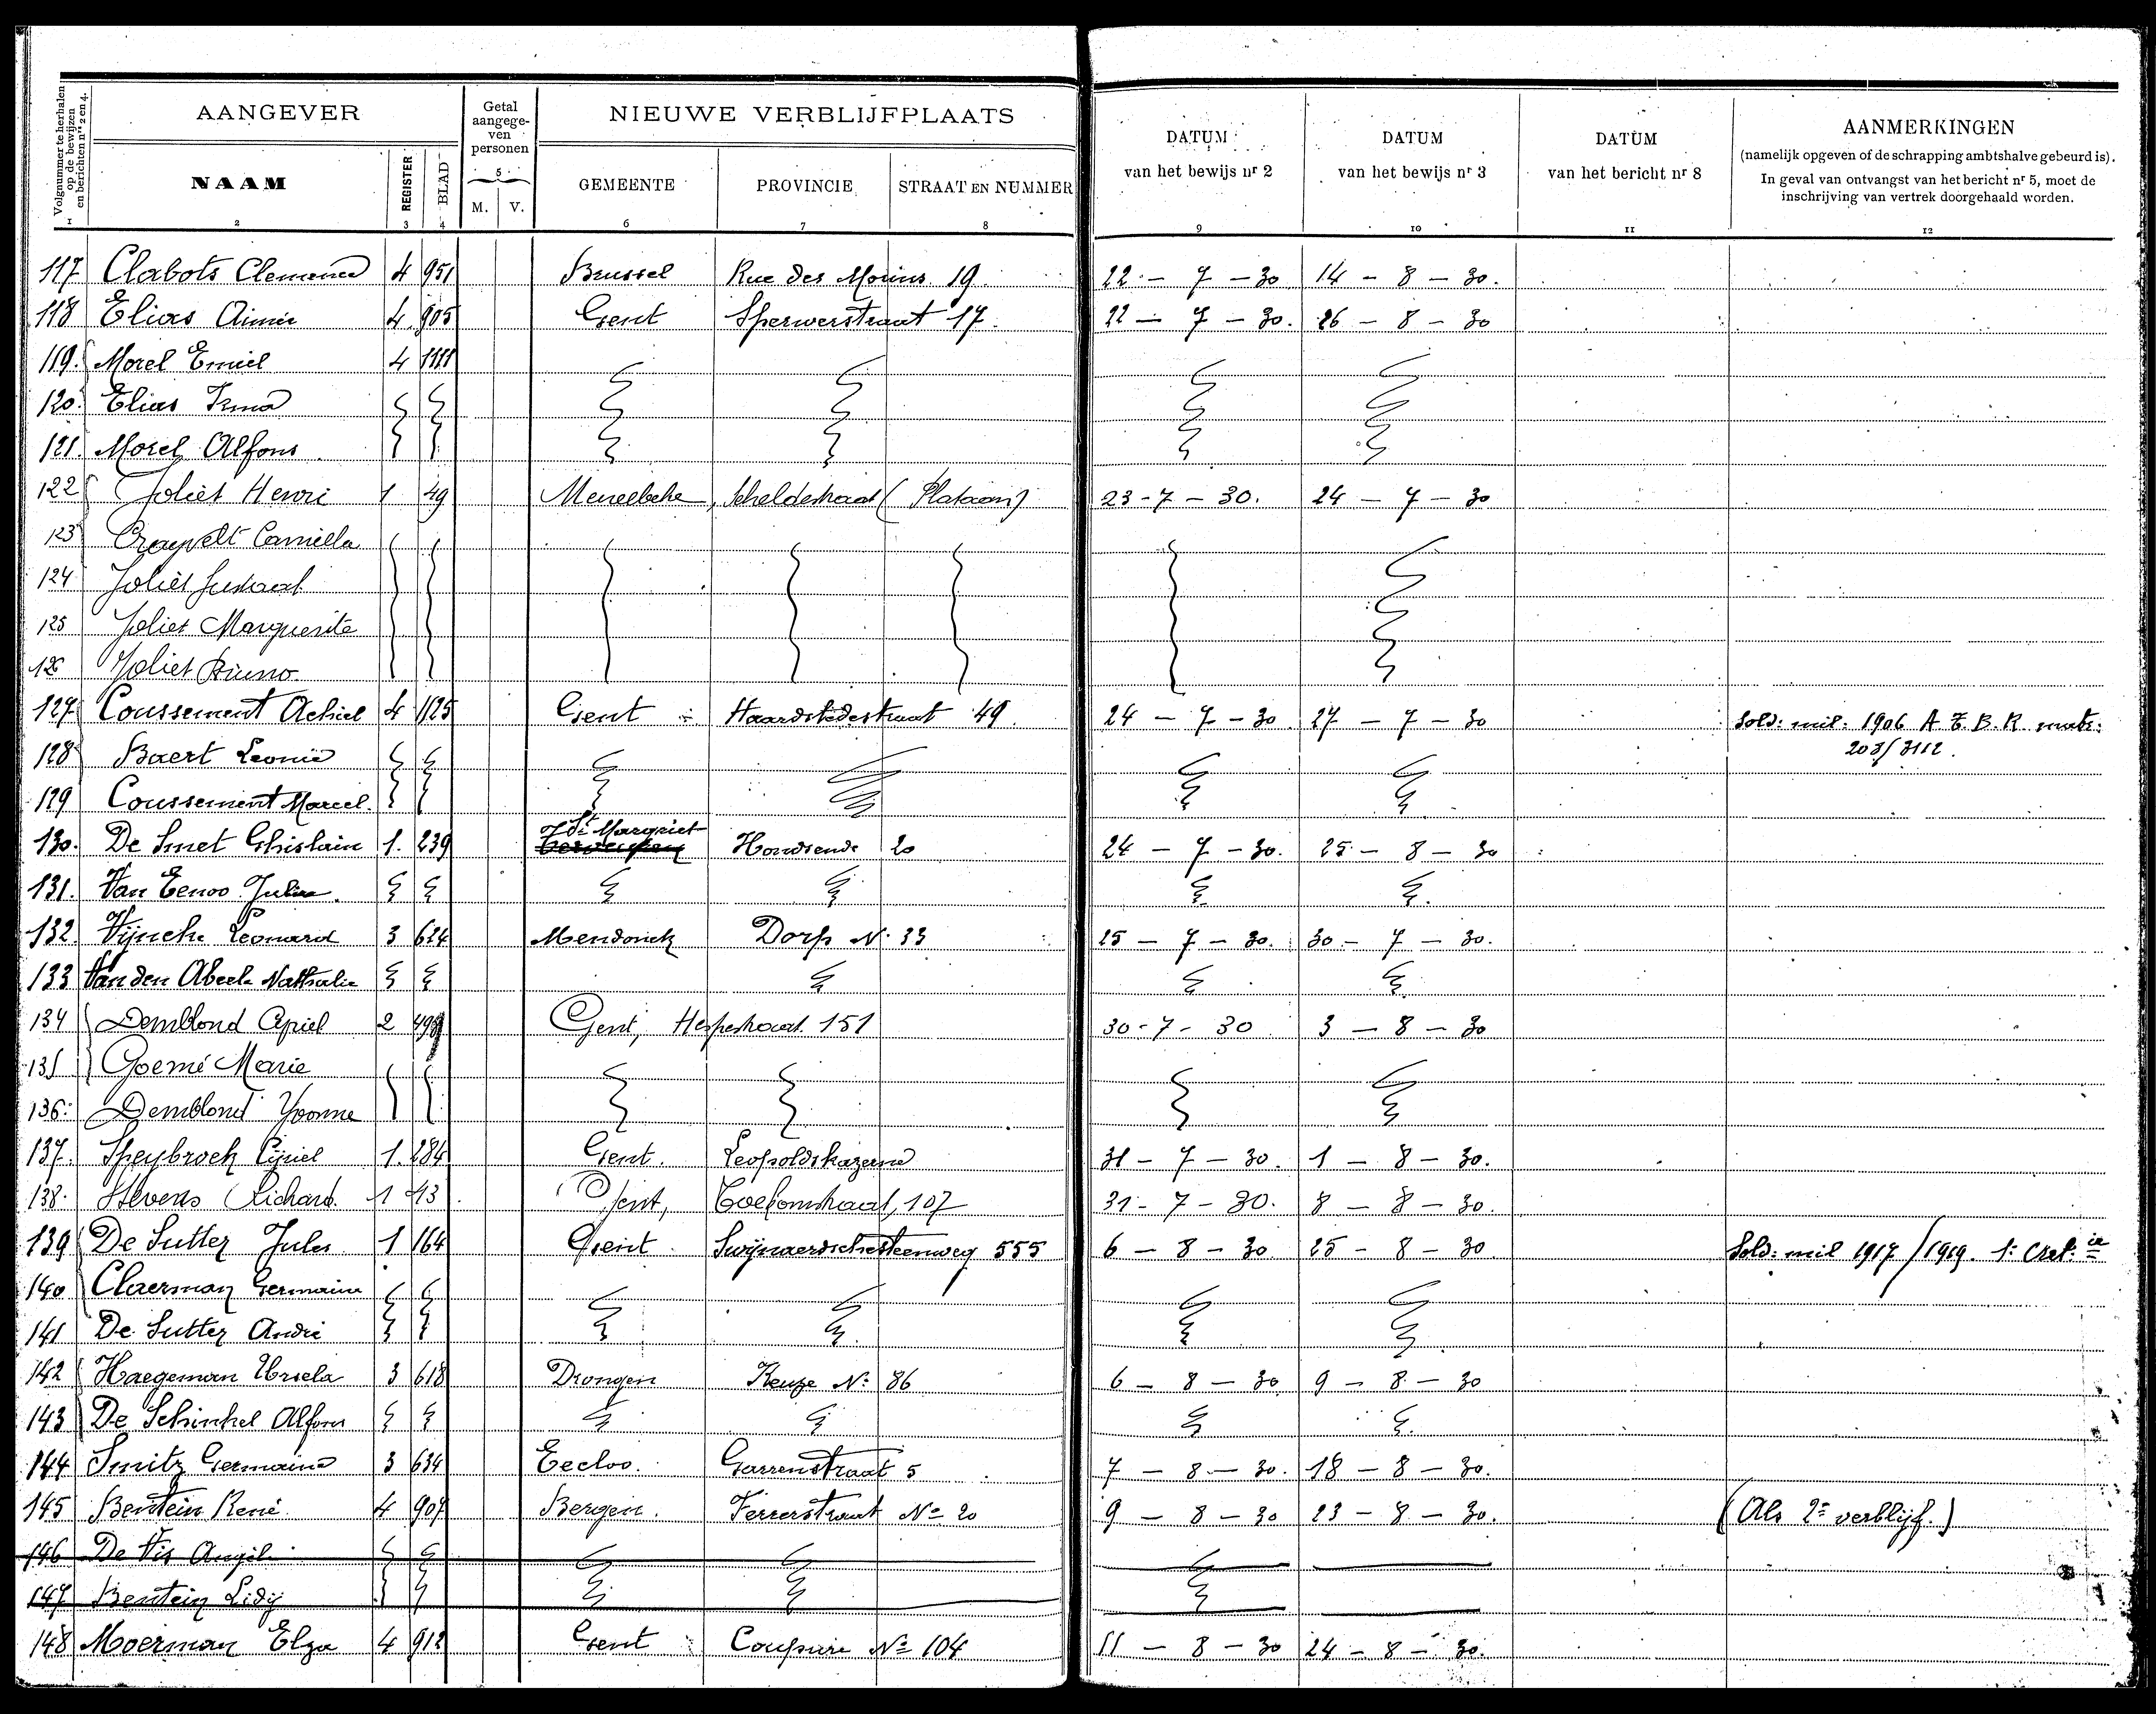 Volgnummer te herhalen op de bewijzen en berichten nrs 2 en 4.
AANGEVER
Getal aangege- ven personen
NIEUWE VERBLIJFPLAATS
DATUM van het bewijs nr 2
DATUM van het bewijs nr 3
DATUM van het bericht nr 8
AANMERKINGEN
(namelijk opgeven of de schrapping ambtshalve gebeurd is).
In geval van ontvangst van het bericht nr 5, moet de
inschrijving van vertrek doorgehaald worden.
NAAM REGISTER BLAD M. V. GEMEENTE PROVINCIE STRAAT EN NUMMER
1 2 3 4 5 6 7 8 9 10 11 12
117 Clabots Clemence 4 951 Brussel Rue des 19. 22 - 7 - 30 14 - 8 - 30.
118 Elias Aimée 4 905 Gent Sperwerstraat 17. 22 - 7 - 30. 26 - 8 - 30
119. Morel Emiel 4 1111
120. Elias Irma
121. Morel Alfons
122 Joliet Henri 1 49 Meerelbeke, Scheldestraat (Plataan) 23-7-30. 24 - 7 - 30
123 Camilla
124 Joliet Gustaaf
125 Joliet Marguerite
126 Joliet Bruno.
127 Coussement Achiel 4 1125 Gent Haardstedestraat 49. 24 - 7 - 30 27 - 7 - 30 Sold: mil: 1906 A.Z.B.R. matr:
203/3112.
128 Baert Leonie
129 Coussement Marcel.
130. De Smet Ghislain 1. 239 St Margriet Hondsende 20 24 - 7 - 30. 25 - 8 - 30
131. Van Eenoo Julia.
132. Vijncke Leonard 3 624 Mendonck Dorp N. 33 25 - 7 - 30. 30 - 7 - 30.
133 Van den Abeele Nathalie
134 Demblond Cyriel 2 498 Gent, 151 30-7-30 3 - 8 - 30
135 Goemé Marie
136. Demblond Yvonne
137. Speybroek Cijriel 1. 284 Gent. Leopoldskazerne 31 - 7 - 30. 1 - 8 - 30.
138. Stevens Richard. 1 43 Gent, Toekomstraat, 107 31-7-30. 8 - 8 - 30.
139 De Sutter Jules 1 164 Gent Swijnaerdschesteenweg 555 6 - 8 - 30 25 - 8 - 30 Sold: mil 1917/1919.
140 Claerman Germaine
141 De Sutter André
142 Haegeman Ursela 3 618 Drongen Keuze N: 86 6 - 8 - 30 9 - 8 - 30
143 De Schinkel Alfons
144 Smitz Germaine 3 634 Eecloo. Garrenstraat 5 7 - 8 - 30. 18 - 8 - 30.
145 Bentein René 4 907 Bergen. Ferrerstraat No 20 9 - 8 - 30 23 - 8 - 30. (Als 2e verblijf.)
146 De Vis Angèle
147 Bentein Lidij
148 Moerman Elza 4 912 Gent Coupure No 104 11 - 8 - 30 24 - 8 - 30.